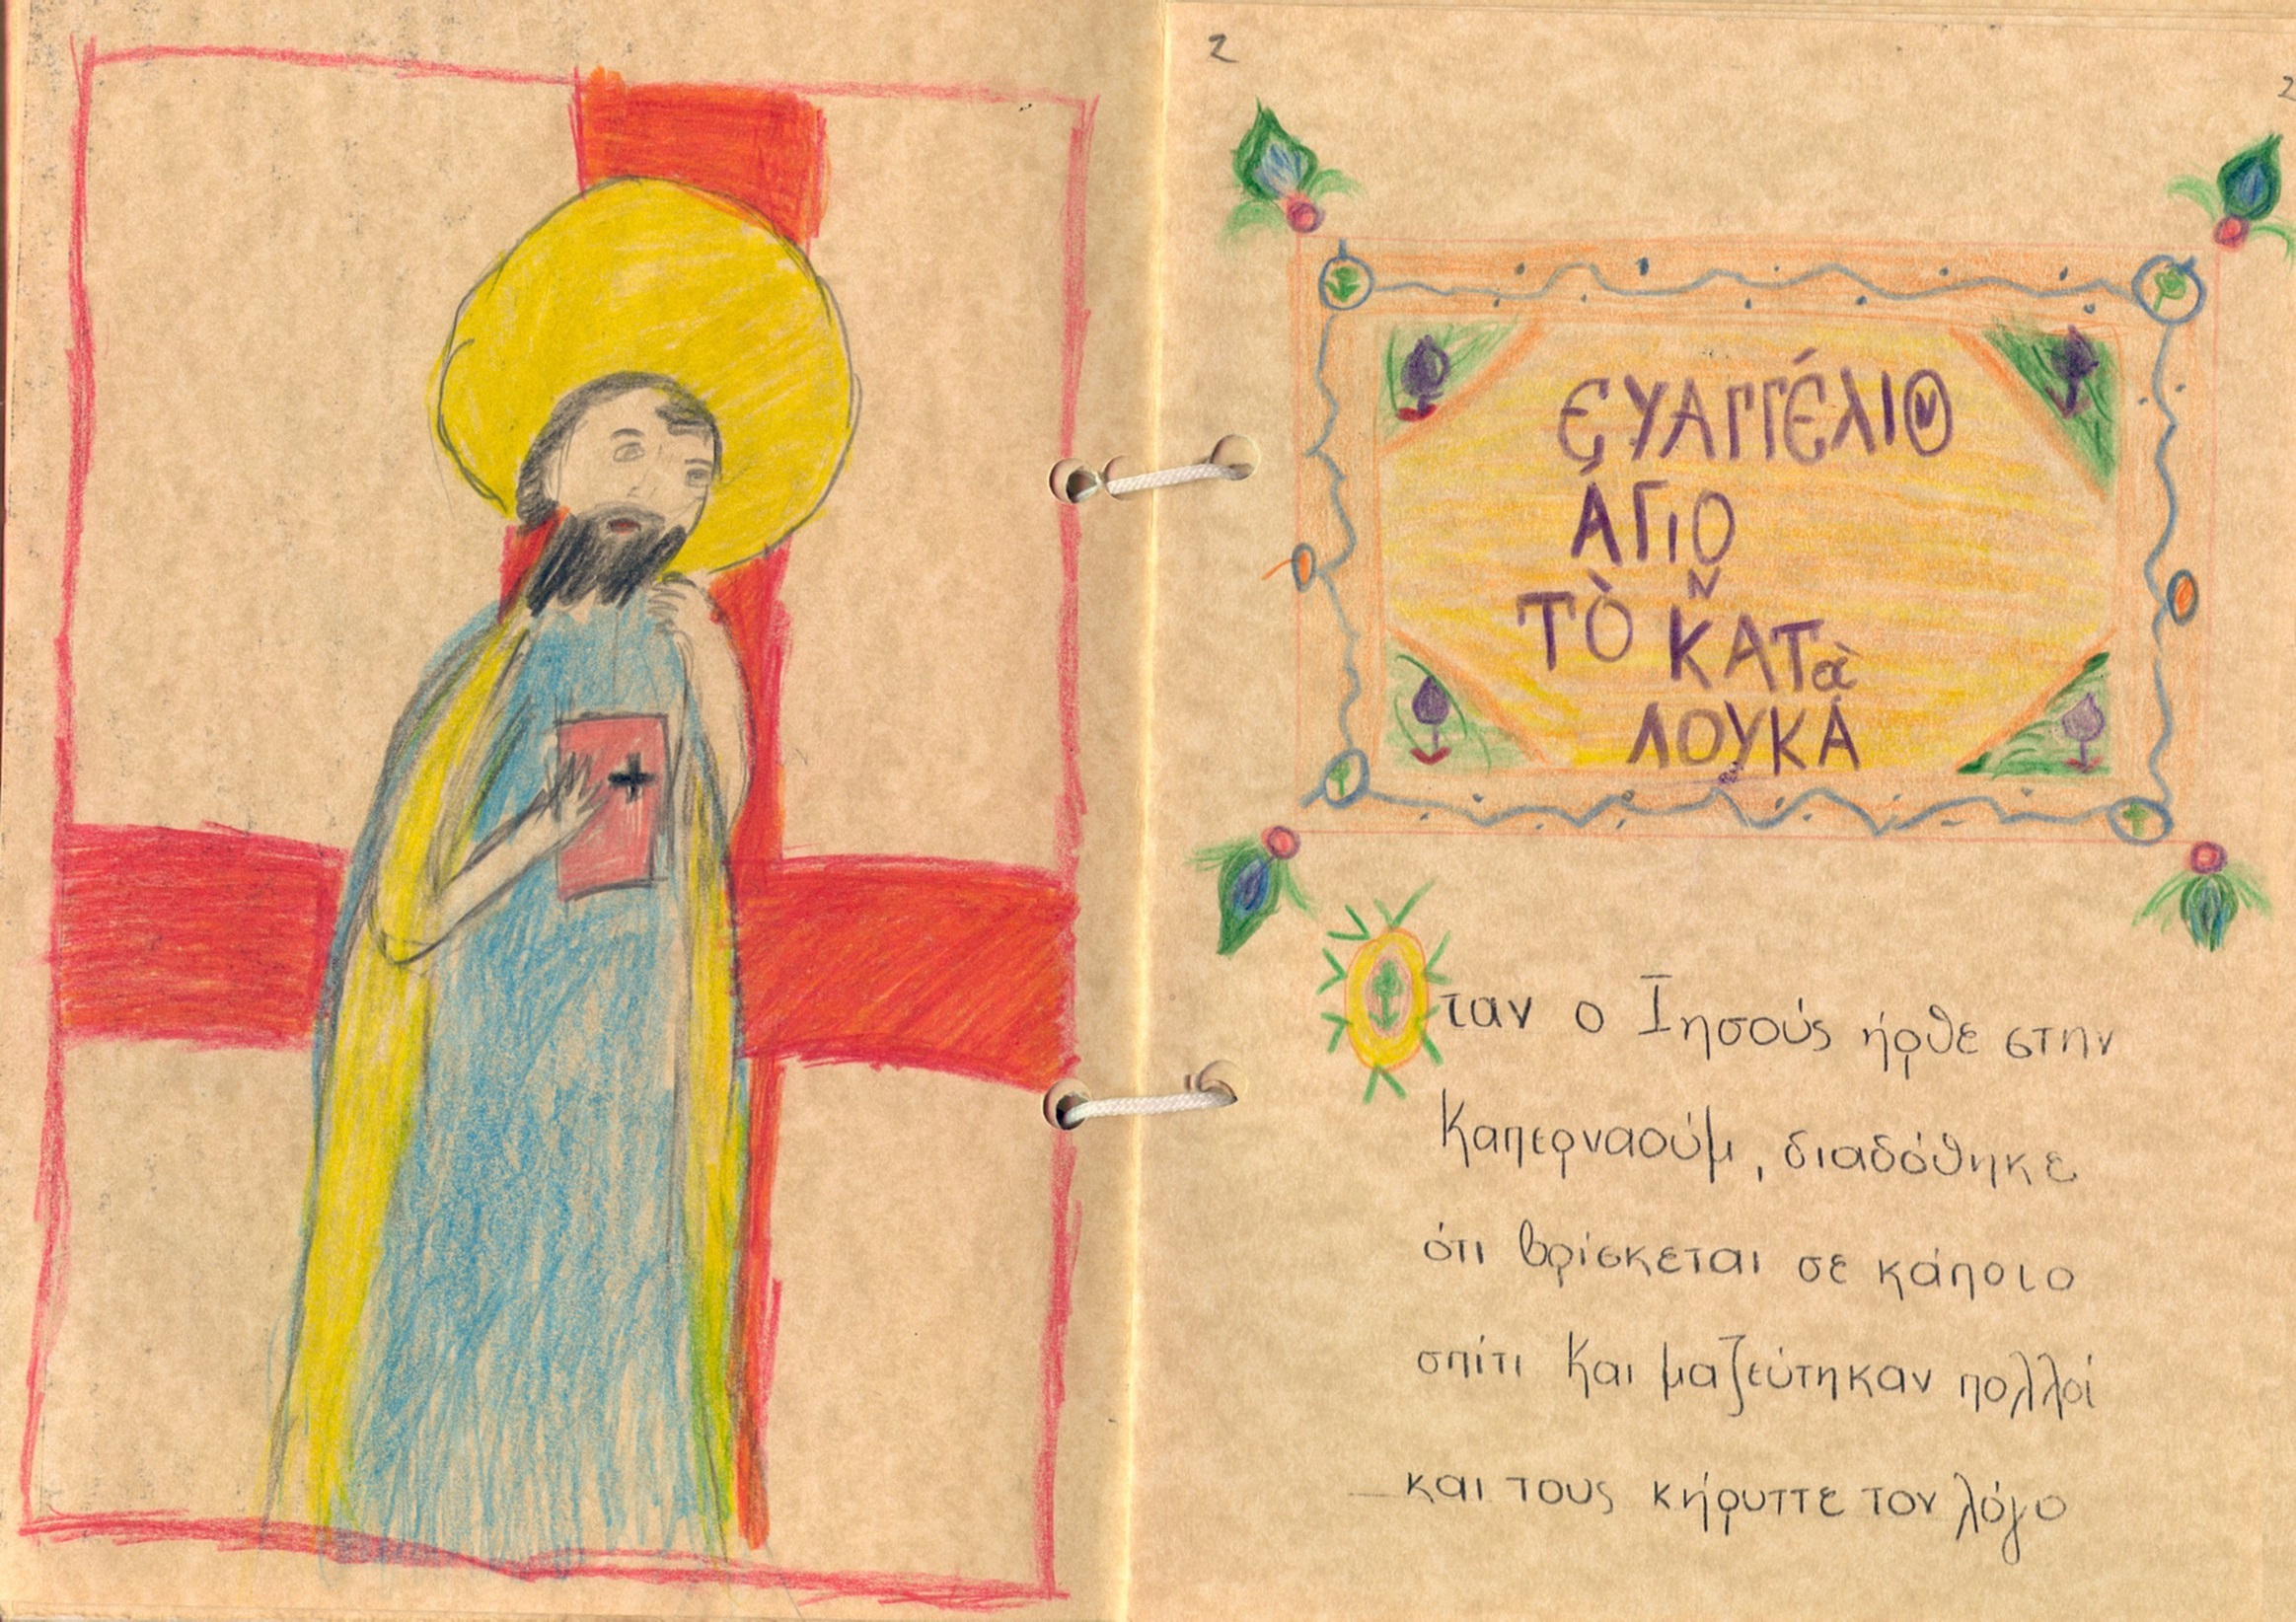 2
2
ΕΥΑΓΓΈΛΙΟΝ
ΆΓΙΟΝ
ΤῸ ΚΑΤὰ
ΛΟΥΚΆ
Όταν ο Ιησούς ήρθε στην
Καπερναούμ, διαδόθηκε
ότι βρίσκεται σε κάποιο
σπίτι και μαζεύτηκαν πολλοί
και τους κήρυττε τον λόγο